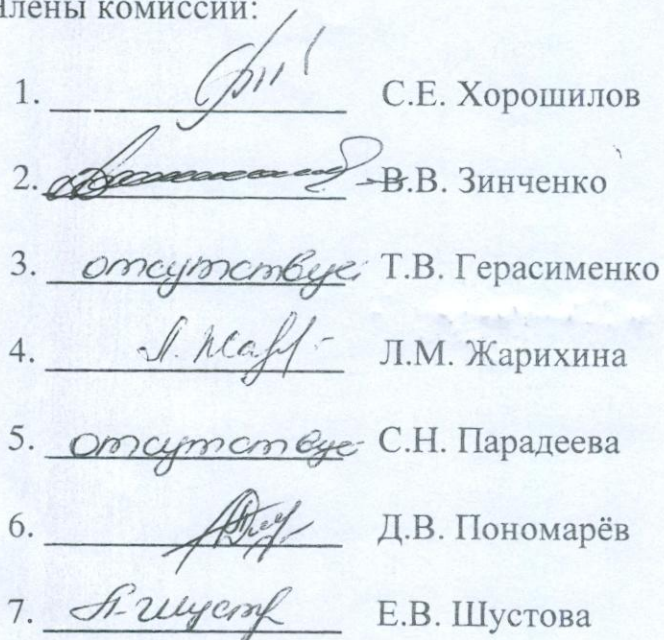 Члены комиссии:
1. С.Е. Хорошилов
2. В.В. Зинченко
3. отсутствуе Т.В. Герасименко
4. Л. Жар Л.М. Жарихина
5. отсутствуе С.Н. Парадеева
6. Д.В. Пономарёв
7. Шуст Е.В. Шустова